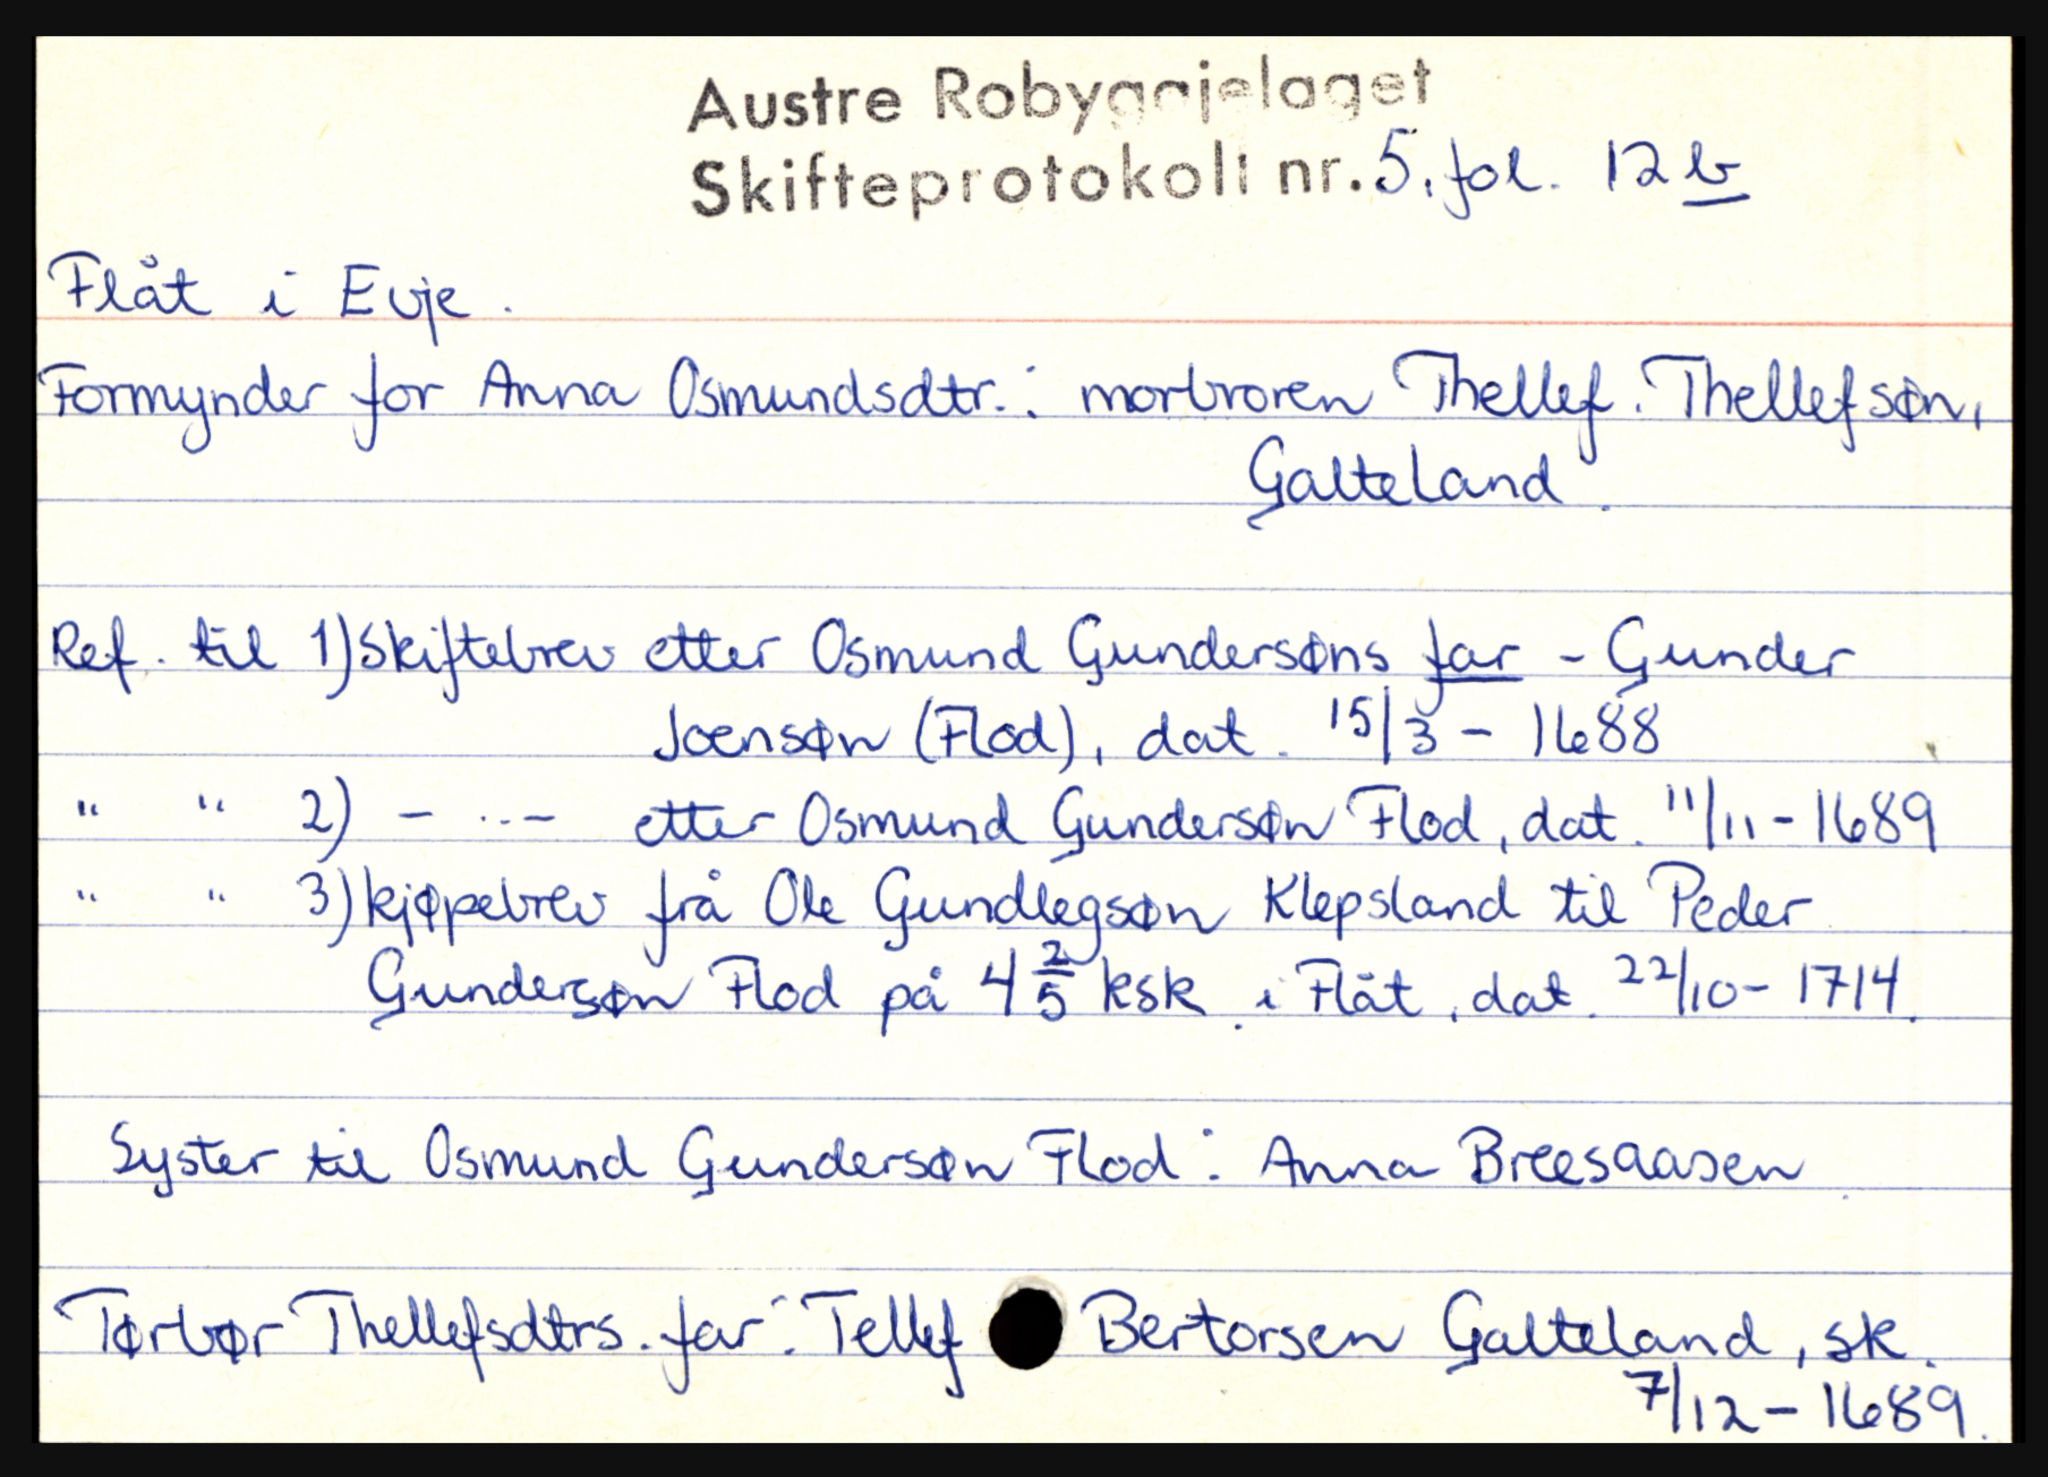 Austre Robyggjelaget
Skifteprotokoll nr. 5, fol. 12 b
Flåt i Evje.
Formynder for Anna Osmundsdtr.: morbroren Thellef. Thellefsøn,
Galteland.
Ref. til 1) Skiftebrev etter Osmund Gundersøns far - Gunder
Joensøn (Flod), dat. 15/3 - 1688
" " 2) - " - etter Osmund Gundersøn Flod, dat. 11/11 - 1689
" " 3) kjøpebrev frå Ole Gundlegsøn Klepsland til Peder
Gundersøn Flod på 4 2/5 ksk. i Flåt, dat. 22/10 - 1714.
Syster til Osmund Gundersøn Flod: Anna Breesaasen.
Tørbør Thellefsdtrs. far: Tellef Bertorsen Galteland, sk.
7/12 - 1689.